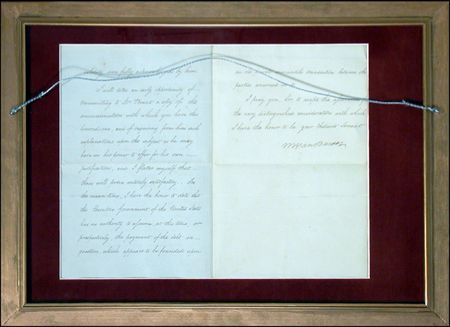 which was fully acknowledged by him.
I will take an early opportunity of
transmitting to Mr a copy of the
communication with which you have this
honored me, and of requiring from him such
explanations upon the subject as he may
have in his power to offer for his own
justification, and I flatter myself that
these will prove entirely satisfactory. In
the meantime, I have the honor to state that
the Executive Government of the United States
has no authority to assume at this time, or
prospectively, the payment of the debt in
question, which appears to be founded upon
between the
parties concerned
I pray you, Sir, to accept the
the very distinguished consideration with which
I have the honor to be your Obedient Servant
M Van Buren